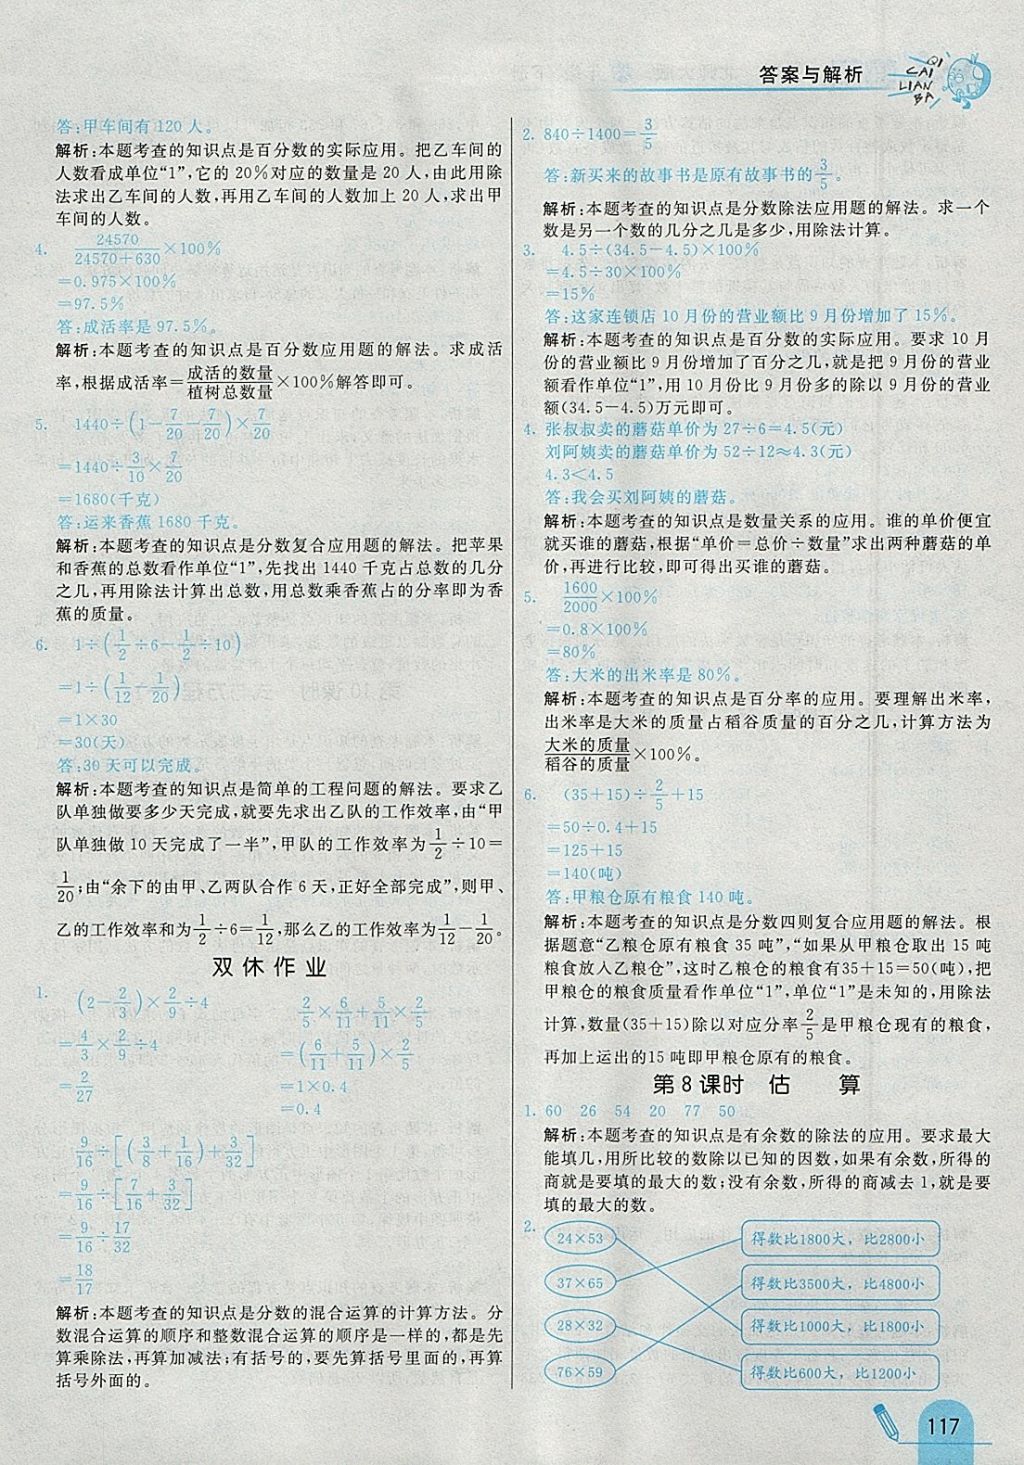 答案与解析
QI
CAI
LIAN
BA
答:甲车间有120人。
解析:本题考查的知识点是百分数的实际应用。把乙车间的
人数看成单位“1”,它的20%对应的数量是20人,由此用除
法求出乙车间的人数,再用乙车间的人数加上20人,求出甲
车间的人数。
4. 24570/(24570+630)×100%
=0.975×100%
=97.5%
答:成活率是97.5%。
解析:本题考查的知识点是百分数应用题的解法。求成活
率,根据成活率=成活的数量/植树总数量×100%解答即可。
5. 1440÷(1-7/20-7/20)×7/20
=1440÷3/10×7/20
=1680(千克)
答:运来香蕉1680千克。
解析:本题考查的知识点是分数复合应用题的解法。把苹果
和香蕉的总数看作单位“1”,先找出1440千克占总数的几分
之几,再用除法计算出总数,用总数乘香蕉占的分率即为香
蕉的质量。
6. 1÷(1/2÷6-1/2÷10)
=1÷(1/12-1/20)
=1×30
=30(天)
答:30天可以完成。
解析:本题考查的知识点是简单的工程问题的解法。要求乙
队单独做要多少天完成,就要先求出乙队的工作效率,由“甲
队单独做10天完成了一半”,甲队的工作效率为1/2÷10=
1/20;由“余下的由甲、乙两队合作6天,正好全部完成”,则甲、
乙的工作效率和为1/2÷6=1/12,那么乙的工作效率为1/12-1/20。
双休作业
1. (2-2/3)×2/9÷4
=4/3×2/9÷4
=2/27
2/5×6/11+5/11×2/5
=(6/11+5/11)×2/5
=1×0.4
=0.4
9/16÷[(3/8+1/16)+3/32]
=9/16÷[7/16+3/32]
=9/16÷17/32
=18/17
解析:本题考查的知识点是分数的混合运算的计算方法。分
数混合运算的顺序和整数混合运算的顺序是一样的,都是先
算乘除法,再算加减法;有括号的,要先算括号里面的,再算
括号外面的。
2. 840÷1400=3/5
答:新买来的故事书是原有故事书的3/5。
解析:本题考查的知识点是分数除法应用题的解法。求一个
数是另一个数的几分之几是多少,用除法计算。
3. 4.5÷(34.5-4.5)×100%
=4.5÷30×100%
=15%
答:这家连锁店10月份的营业额比9月份增加了15%。
解析:本题考查的知识点是百分数的实际应用。要求10月
份的营业额比9月份增加了百分之几,就是把9月份的营业
额看作单位“1”,用10月份比9月份多的除以9月份的营业
额(34.5-4.5)万元即可。
4. 张叔叔卖的蘑菇单价为27÷6=4.5(元)
刘阿姨卖的蘑菇单价为52÷12≈4.3(元)
4.3<4.5
答:我会买刘阿姨的蘑菇。
解析:本题考查的知识点是数量关系的应用。谁的单价便宜
就买谁的蘑菇,根据“单价=总价÷数量”求出两种蘑菇的单
价,再进行比较,即可得出买谁的蘑菇。
5. 1600/2000×100%
=0.8×100%
=80%
答:大米的出米率是80%。
解析:本题考查的知识点是百分率的应用。要理解出米率,
出米率是大米的质量占稻谷质量的百分之几,计算方法为
大米的质量/稻谷的质量×100%。
6. (35+15)÷2/5+15
=50÷0.4+15
=125+15
=140(吨)
答:甲粮仓原有粮食140吨。
解析:本题考查的知识点是分数四则复合应用题的解法。根
据题意“乙粮仓原有粮食35吨”,“如果从甲粮仓取出15吨
粮食放入乙粮仓”,这时乙粮仓的粮食有35+15=50(吨),把
甲粮仓的粮食质量看作单位“1”,单位“1”是未知的,用除法
计算,数量(35+15)除以对应分率2/5是甲粮仓现有的粮食,
再加上运出的15吨即甲粮仓原有的粮食。
第8课时 估 算
1. 60 26 54 20 77 50
解析:本题考查的知识点是有余数的除法的应用。要求最大
能填几,用所比较的数除以已知的因数,如果有余数,所得的
商就是要填的最大的数;没有余数,所得的商减去1,就是要
填的最大的数。
2. 24×53 得数比1800大，比2800小
37×65 得数比3500大，比4800小
28×32 得数比1000大，比1800小
76×59 得数比600大，比1200小
117